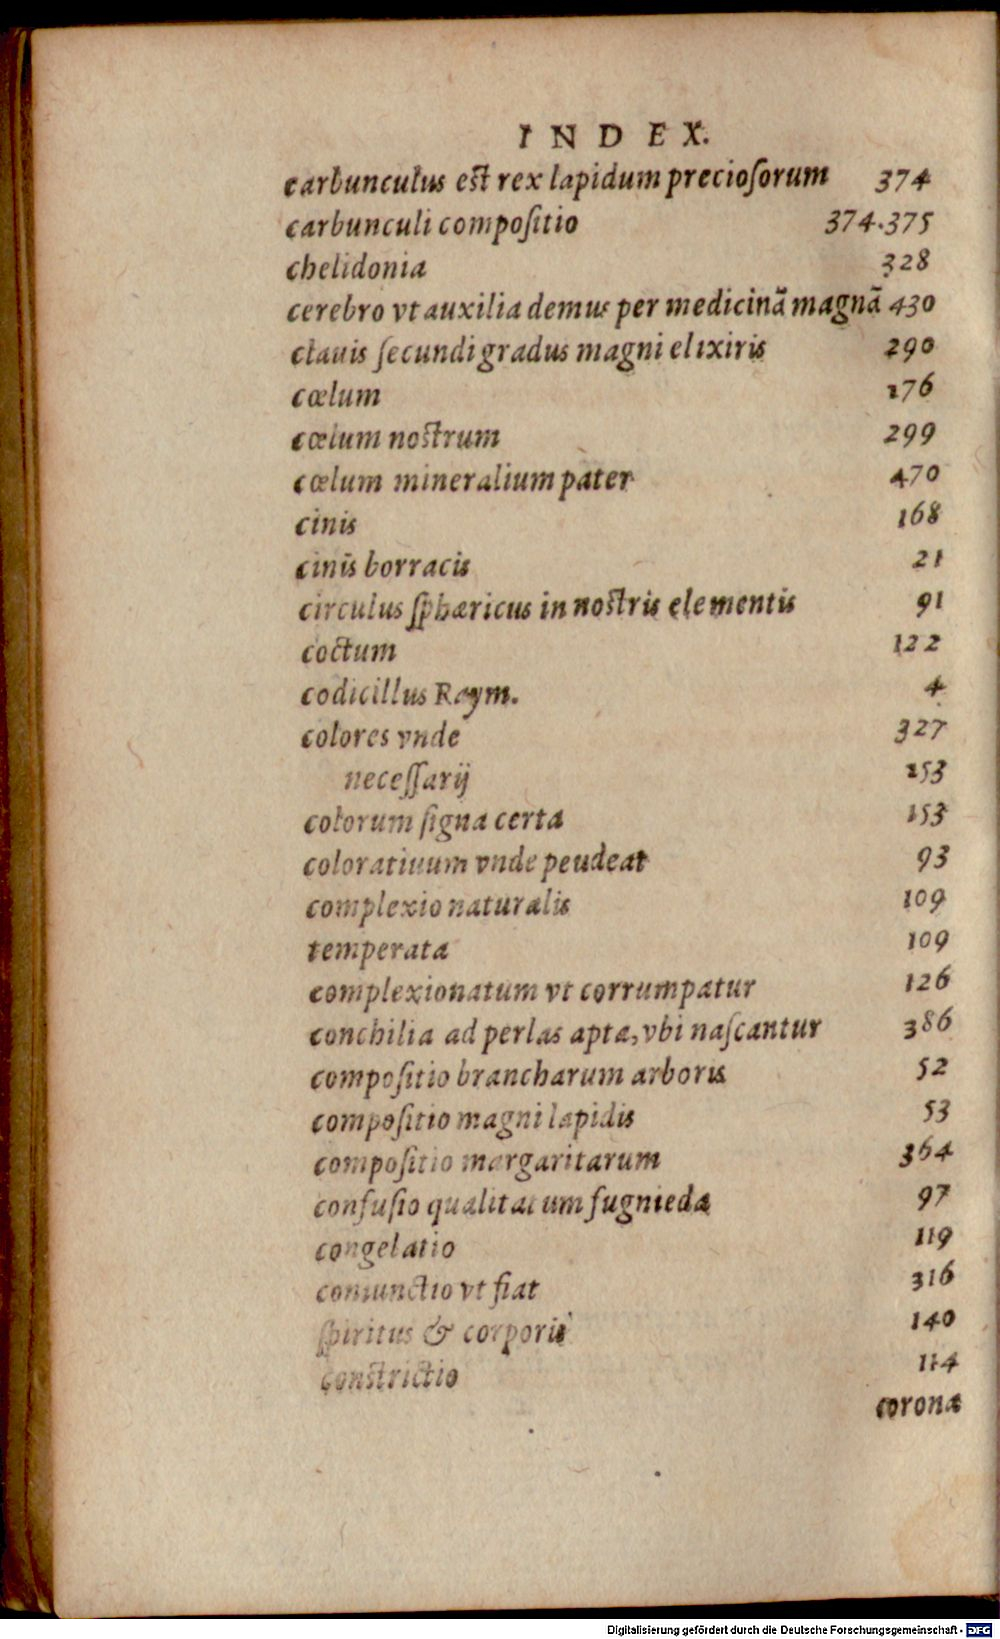 INDEX.
carbunculus est rex lapidum precioſorum 374
carbunculi compoſitio 374.375
chelidonia 328
cerebro vt auxilia demus per medicinā magnā 430
clauis ſecundi gradus magni elixiris 290
cœlum 176
cœlum nostrum 299
cœlum mineralium pater 470
cinis 168
cinis borracis 21
circulus ſphæricus in nostris elementis 91
coctum 122
codicillus Raym. 4
colores vnde 327
neceſſarij 153
colorum ſigna certa 153
coloratiuum vnde peudeat 93
complexio naturalis 109
temperata 109
complexionatum vt corrumpatur 126
conchilia ad perlas apta, vbi naſcantur 386
compoſitio brancharum arboris 52
compoſitio magni lapidis 53
compoſitio margaritarum 364
confuſio qualitatum fugnieda 97
congelatio 119
coniunctio vt fiat 316
ſpiritus & corporis 140
constrictio 114
corona
Digitalisierung gefördert durch die Deutsche Forschungsgemeinschaft - DFG